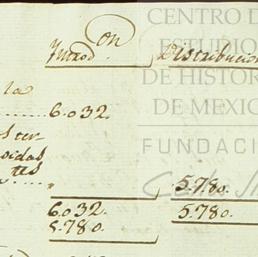 CENTRO D
ESTUDIO
DE HISTOR
DE MEXIC
FUNDACI
Introd.on Distribucion
la
6.032.
s ter
5.780.
6.032. 5.780.
5.780.